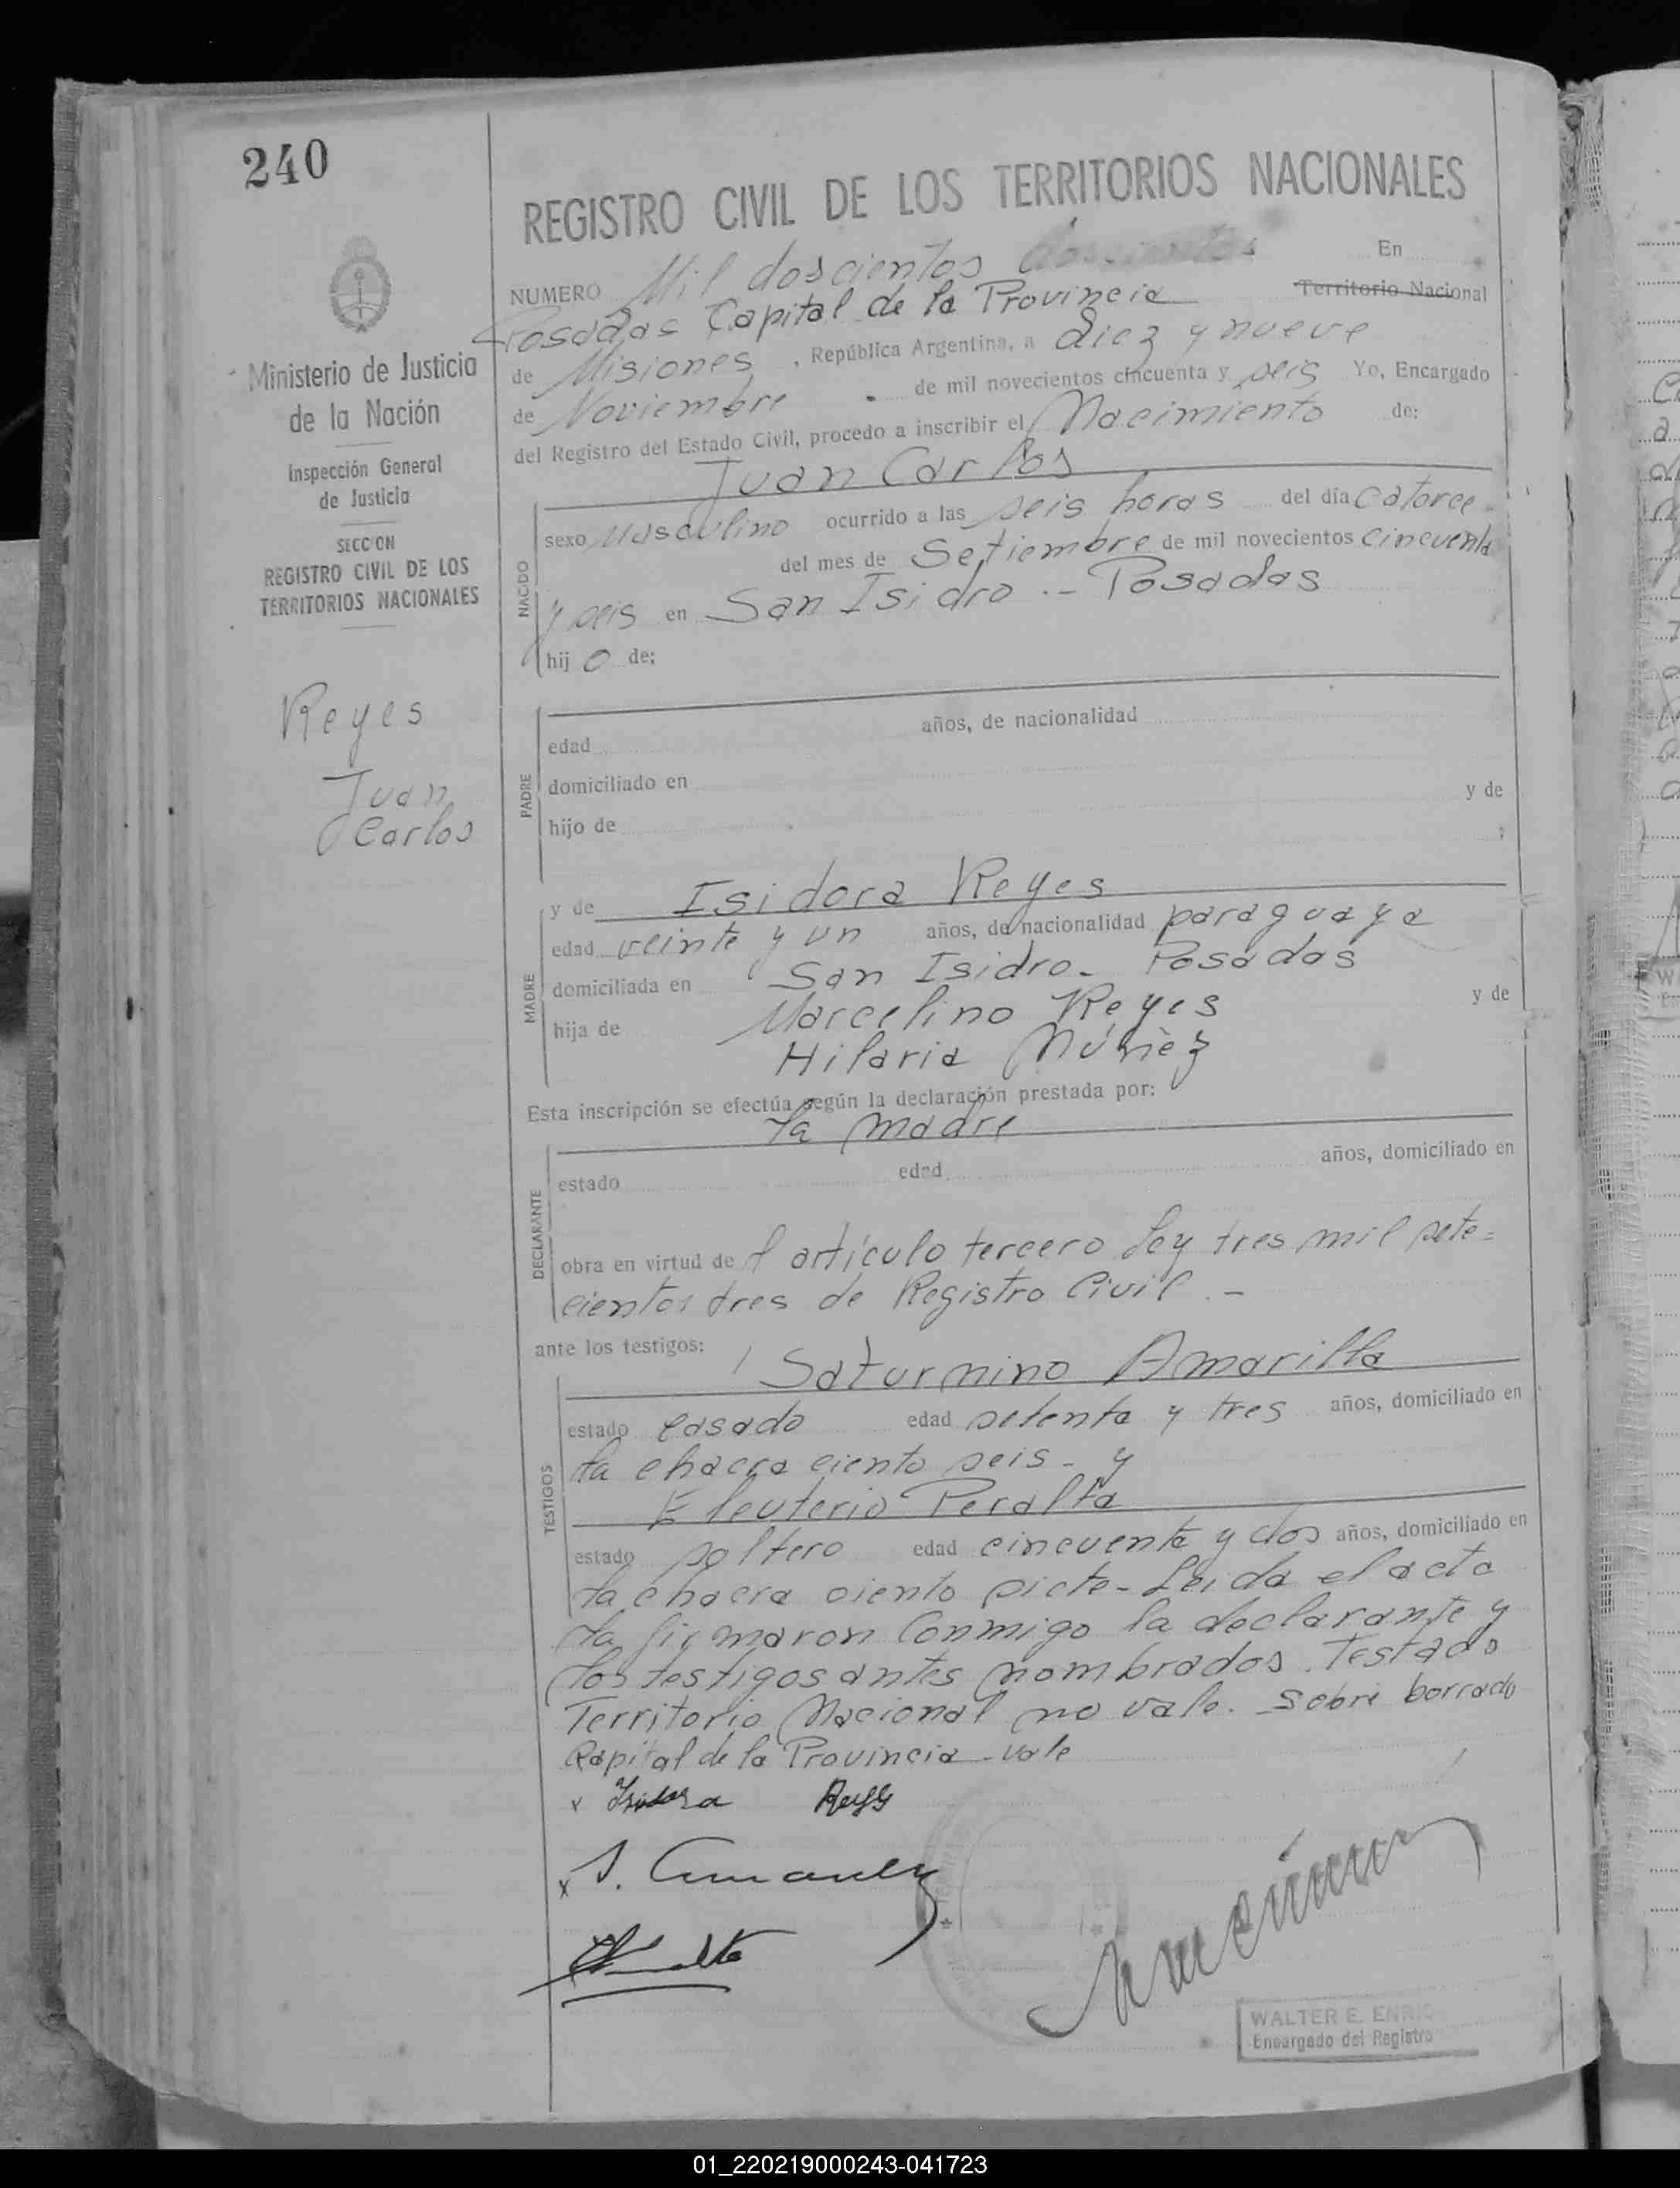 240
REGISTRO CIVIL DE LOS TERRITORIOS NACIONALES
Ministerio de Justicia
de la Nación
Inspección General
de Justicia
SECCION
REGISTRO CIVIL DE LOS
TERRITORIOS NACIONALES
Reyes
Juan
Carlos
NUMERO Mil doscientos En
Posadas Capital de la Provincia Territorio Nacional
de Misiones, República Argentina, a diez y nueve
de Noviembre de mil novecientos cincuenta y seis Yo, Encargado
del Registro del Estado Civil, procedo a inscribir el Nacimiento de:
Juan Carlos
NACIDO
sexo Masculino ocurrido a las seis horas del día catorce
del mes de Setiembre de mil novecientos cincuenta
y seis en San Isidro.- Posadas
hij o de;
PADRE
edad años, de nacionalidad
domiciliado en y de
hijo de ;
MADRE
y de Isidora Reyes
edad veinte y un años, de nacionalidad paraguaya
domiciliada en San Isidro- Posadas
hija de Marcelino Reyes y de
Hilaria Núñez
Esta inscripción se efectúa según la declaración prestada por:
la madre
DECLARANTE
estado edad años, domiciliado en
obra en virtud de l artículo tercero Ley tres mil sete=
cientos tres de Registro Civil.-
ante los testigos:
Saturnino Amarilla
TESTIGOS
estado casado edad setenta y tres años, domiciliado en
la chacra ciento seis- y
Eleuterio Peralta
estado soltero edad cincuenta y dos años, domiciliado en
la chacra ciento siete- Leida el acta
la firmaron conmigo la declarante y
los testigos antes nombrados. Testado
Territorio Nacional no vale. Sobre borrado
Capital de la Provincia- vale
x Isidora Reyes
x S.
WALTER E. ENRI
Encargado del Registro
01_220219000243-041723